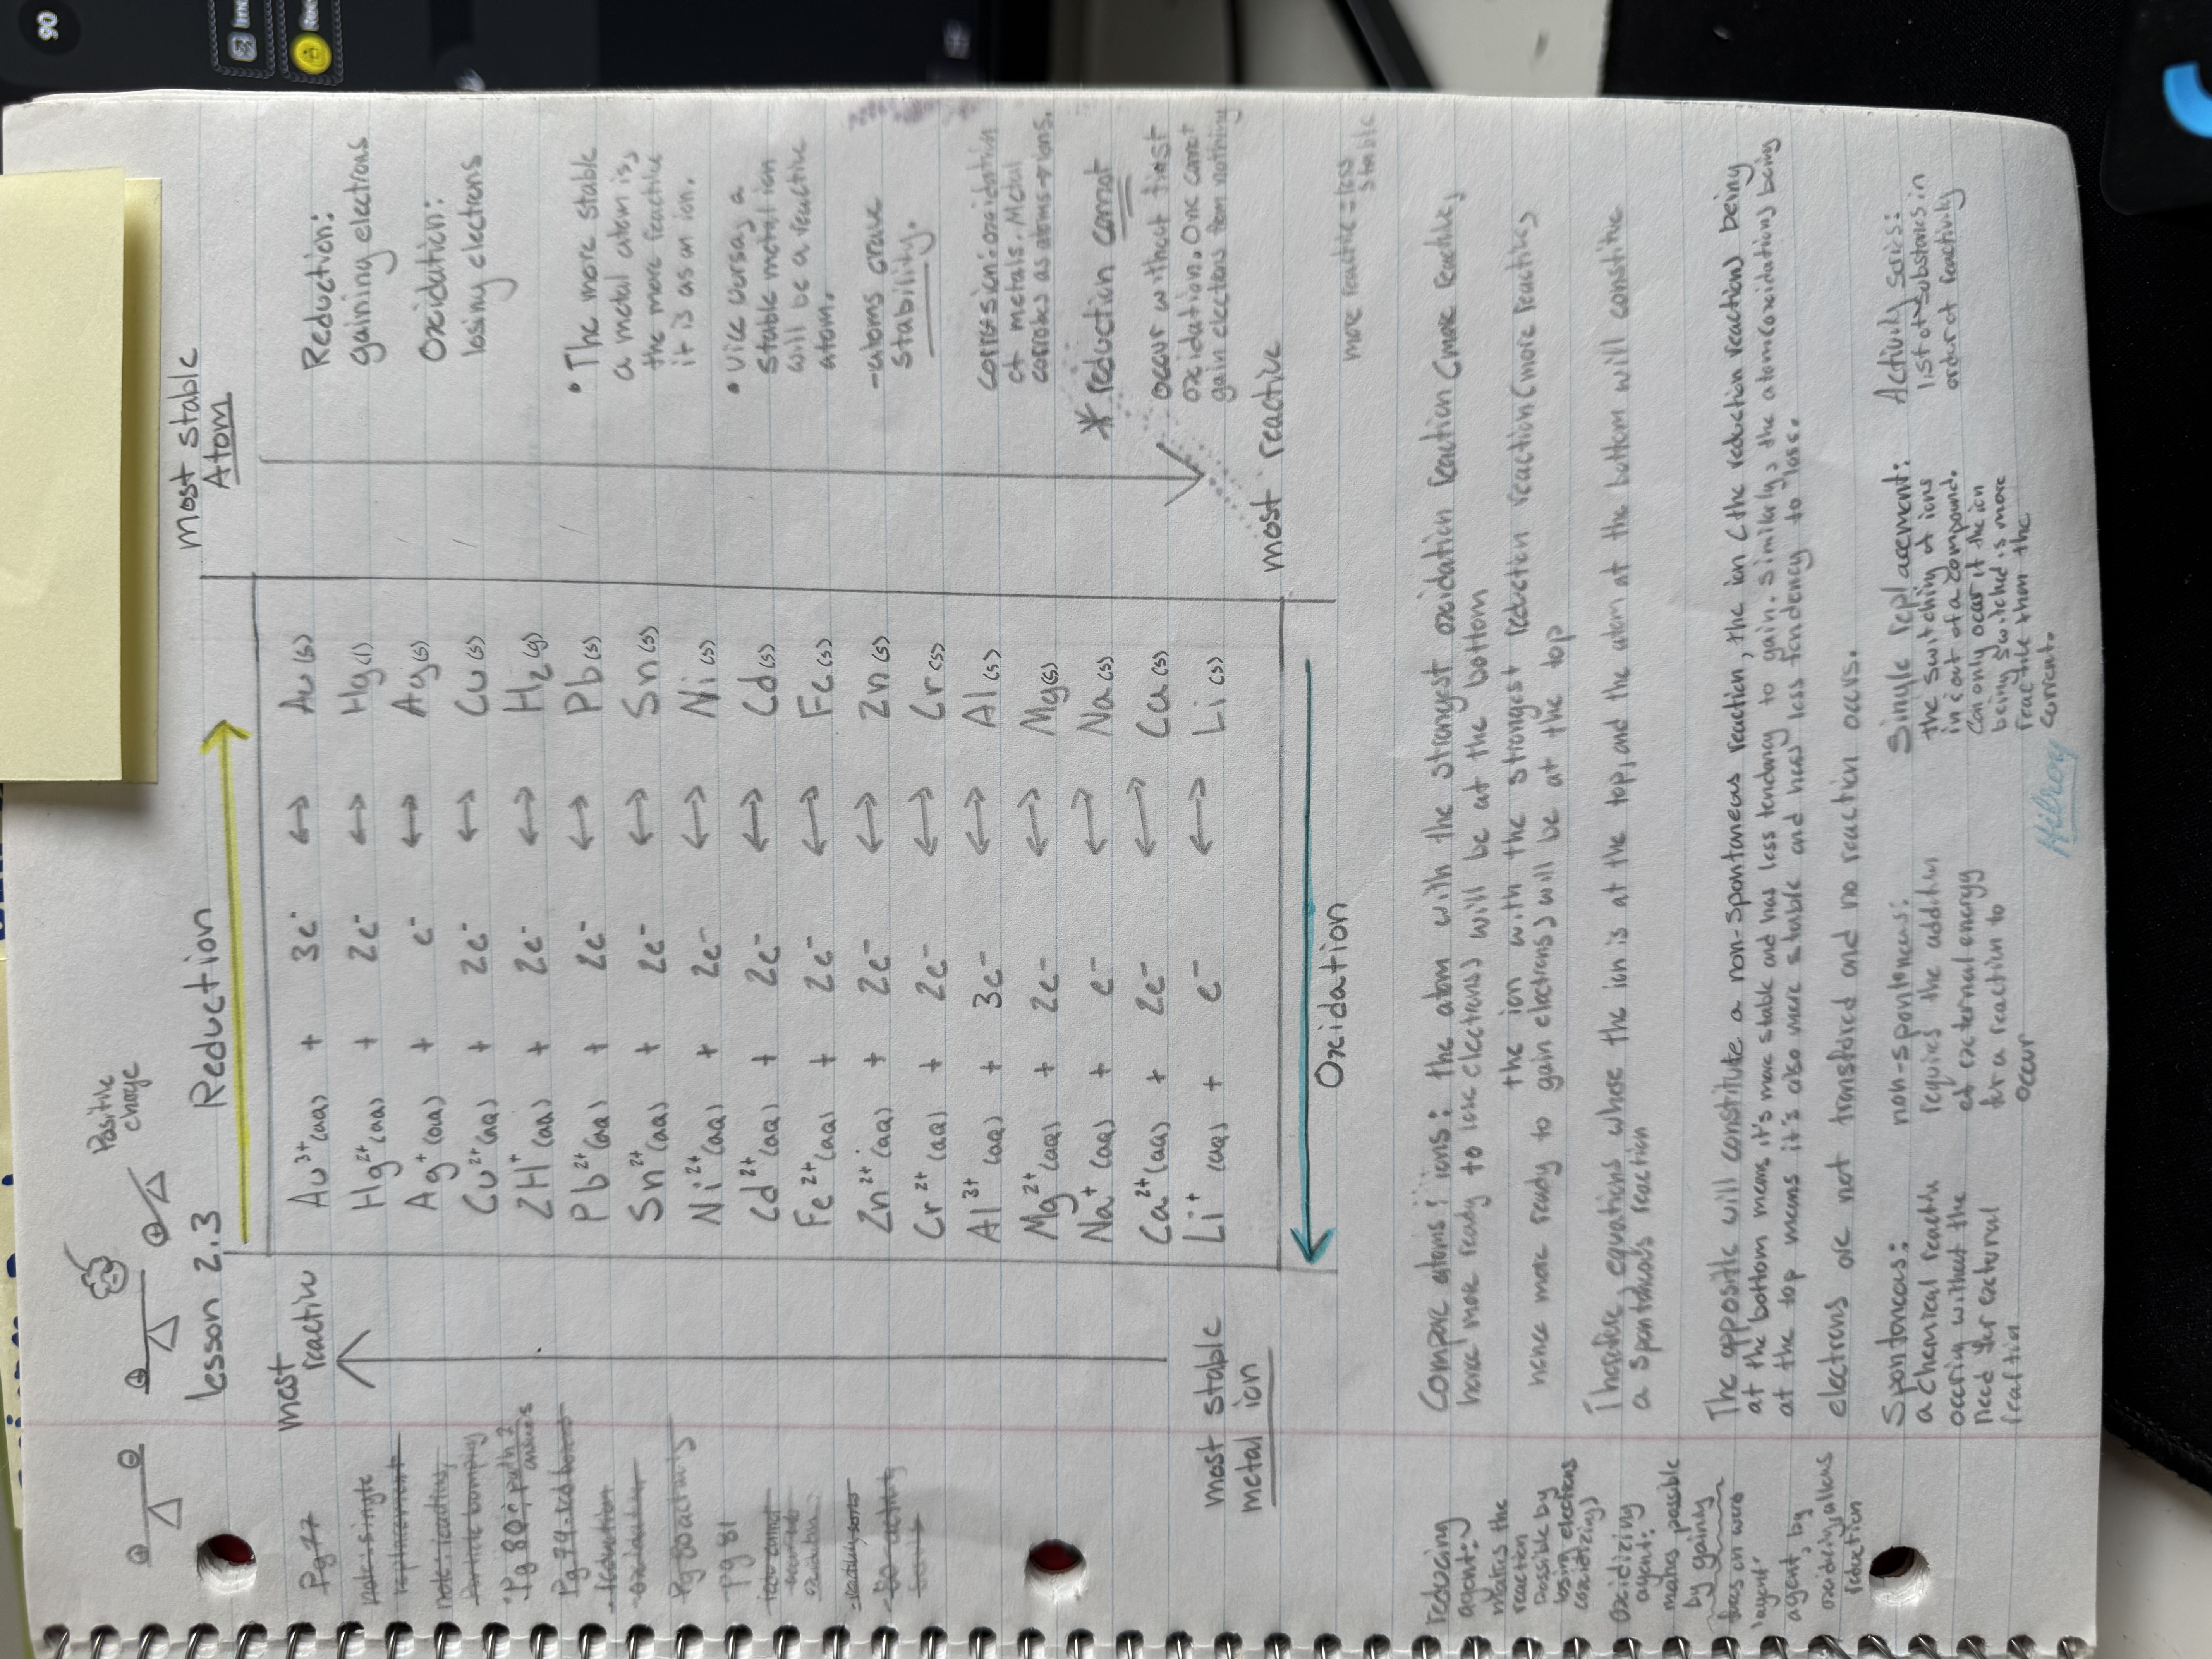 Positive
charge
lesson 2.3 Reduction
most stable
Atom
most
reactive
Au³⁺(aq) + 3e⁻ ↔ Au(s)
Hg²⁺(aq) + 2e⁻ ↔ Hg(l)
Ag⁺(aq) + e⁻ ↔ Ag(s)
Cu²⁺(aq) + 2e⁻ ↔ Cu(s)
2H⁺(aq) + 2e⁻ ↔ H₂(g)
Pb²⁺(aq) + 2e⁻ ↔ Pb(s)
Sn²⁺(aq) + 2e⁻ ↔ Sn(s)
Ni²⁺(aq) + 2e⁻ ↔ Ni(s)
Cd²⁺(aq) + 2e⁻ ↔ Cd(s)
Fe²⁺(aq) + 2e⁻ ↔ Fe(s)
Zn²⁺(aq) + 2e⁻ ↔ Zn(s)
Cr²⁺(aq) + 2e⁻ ↔ Cr(s)
Al³⁺(aq) + 3e⁻ ↔ Al(s)
Mg²⁺(aq) + 2e⁻ ↔ Mg(s)
Na⁺(aq) + e⁻ ↔ Na(s)
Ca²⁺(aq) + 2e⁻ ↔ Ca(s)
Li⁺(aq) + e⁻ ↔ Li(s)
most stable
metal ion
Oxidation
most reactive
Reduction:
gaining electrons
Oxidation:
losing electrons
• The more stable
a metal atom is,
the more reactive
it is as an ion.
• Vice versa, a
stable metal ion
will be a reactive
atom.
-atoms crave
stability.
corrosion: oxidation
of metals. Metal
corrodes as atoms → ions.
* reduction cannot
occur without first
oxidation. One cannot
gain electrons from nothing
more reactive = less
stable
Pg 77
note: single
replacement
note: reading,
Particle bumping
Pg 80
Pg 74
-reduction
-oxidation
Pg 80
Pg 81
Compare atoms; ions: the atom with the strongest oxidation reaction (more reactive,
hence more ready to lose electrons) will be at the bottom
the ion with the strongest reduction reaction (more reactive,
hence more ready to gain electrons) will be at the top
Therefore, equations where the ion is at the top, and the atom at the bottom will constitue
a spontaneous reaction
The opposite will constitute a non-spontaneous reaction, the ion (the reduction reaction) being
at the bottom means it's more stable and has less tendancy to gain. Similarly, the atom (oxidation) being
at the top means it's also more stable and has less tendency to loss.
electrons are not transfered and no reaction occurs.
reducing
agent:
makes the
reaction
possible by
losing electrons
(oxidizing)
oxidizing
agent:
makes possible
by gaining
'agent'
agent, by
oxidizing, allows
reduction
Spontaneous:
a chemical reaction
occuring without the
need for external
reaction
non-spontaneous:
requires the addition
of external energy
for a reaction to
occur
Single replacement:
the switching of ions
in & out of a compound.
Can only occur if the ion
being switched is more
reactive than the
current.
Activity series:
list of substances in
order of reactivity